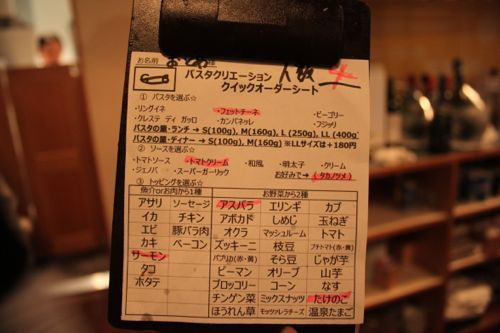 お名前 様
パスタクリエーション
クイックオーダーシート
① パスタを選ぶ☆
・リングイネ ・フェットチーネ ・ビーゴリー
・クレステ ディ ガッロ ・カンパネッレ ・フジッリ
パスタの量・ランチ → S(100g), M(160g), L (250g), LL (400g)
パスタの量・ディナー → S(100g), M(160g) ※LLサイズは＋180円
② ソースを選ぶ☆
・トマトソース ・トマトクリーム ・和風 ・明太子 ・クリーム
・ジェノバ ・スーパーガーリック お好みで→ (タカノツメ)
③ トッピングを選ぶ☆
魚介orお肉から1種 お野菜から2種
アサリ ソーセージ アスパラ エリンギ カブ
イカ チキン アボカド しめじ 玉ねぎ
エビ 豚バラ肉 オクラ マッシュルーム トマト
カキ ベーコン ズッキーニ 枝豆 プチトマト(赤・黄)
サーモン パプリカ(赤・黄) そら豆 じゃが芋
タコ ピーマン オリーブ 山芋
ホタテ ブロッコリー コーン なす
チンゲン菜 ミックスナッツ たけのこ
ほうれん草 モッツァレラチーズ 温泉たまご